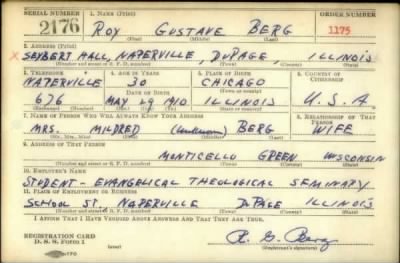 SERIAL NUMBER 1. NAME (Print) ORDER NUMBER
2176 ROY GUSTAVE BERG 1175
(First) (Middle) (Last)
2. ADDRESS (Print)
SEYBERT HALL, NAPERVILLE, DUPAGE, ILLINOIS
(Number and street or R. F. D. number) (Town) (County) (State)
3. TELEPHONE 4. AGE IN YEARS 5. PLACE OF BIRTH 6. COUNTRY OF CITIZENSHIP
NAPERVILLE 30 CHICAGO
DATE OF BIRTH (Town or county)
676 MAY 29 1910 ILLINOIS U.S.A.
(Mo.) (Day) (Yr.) (State or country)
7. NAME OF PERSON WHO WILL ALWAYS KNOW YOUR ADDRESS 8. RELATIONSHIP OF THAT PERSON
MRS. MILDRED (unknown) BERG WIFE
(Mr., Mrs., Miss) (First) (Middle) (Last)
9. ADDRESS OF THAT PERSON
MONTICELLO GREEN WISCONSIN
(Number and street or R. F. D. number) (Town) (County) (State)
10. EMPLOYER'S NAME
STUDENT - EVANGELICAL THEOLOGICAL SEMINARY
11. PLACE OF EMPLOYMENT OR BUSINESS
SCHOOL ST. NAPERVILLE DUPAGE ILLINOIS
(Number and street or R. F. D. number) (Town) (County) (State)
I AFFIRM THAT I HAVE VERIFIED ABOVE ANSWERS AND THAT THEY ARE TRUE.
REGISTRATION CARD
D. S. S. Form 1 R. G. Berg
(Registrant's signature)